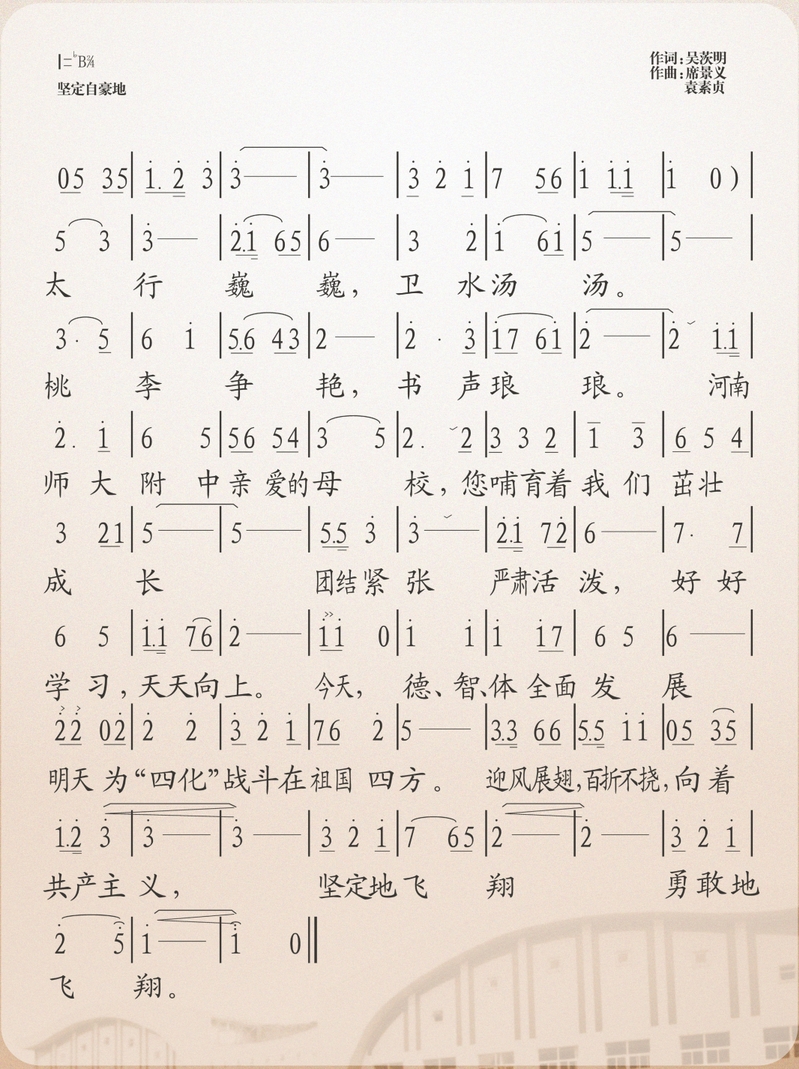 1=♭B 2/4
坚定自豪地
作词:吴茨明
作曲:席景义
袁素贞
05 35 | 1. 2 3 | 3 — | 3 — | 3 2 1 | 7 56 | 1 1.1 | 1 0 ) |
5 3 | 3 — | 2.1 65 | 6 — | 3 2 | 1 61 | 5 — | 5 — |
太 行 巍 巍, 卫 水 汤 汤。
3· 5 | 6 1 | 5.6 43 | 2 — | 2 · 3 | 17 61 | 2 — | 2 ˇ 1.1 |
桃 李 争 艳, 书 声 琅 琅。 河南
2. 1 | 6 5 | 56 54 | 3 5 | 2. ˇ 2 | 3 3 2 | 1 3 | 6 5 4 |
师 大 附 中 亲 爱的 母 校, 您哺育着 我 们 茁壮
3 21 | 5 — | 5 — | 5.5 3 | 3 — ˇ | 2.1 72 | 6 — | 7· 7 |
成 长 团结 紧 张 严肃活 泼, 好 好
6 5 | 1.1 76 | 2 — | 11 0 | 1 1 | 1 17 | 6 5 | 6 — |
学 习, 天天向上。 今天, 德、智、体 全面 发 展
22 02 | 2 2 | 3 2 1 | 76 2 | 5 — | 3.3 66 | 5.5 11 | 05 35 |
明天 为“四化”战斗在 祖国 四方。 迎风展翅,百折不挠,向着
1.2 3 | 3 — | 3 — | 3 2 1 | 7 65 | 2 — | 2 — | 3 2 1 |
共产主 义, 坚定地 飞 翔 勇敢地
2 5 | 1 — | 1 0 ||
飞 翔。